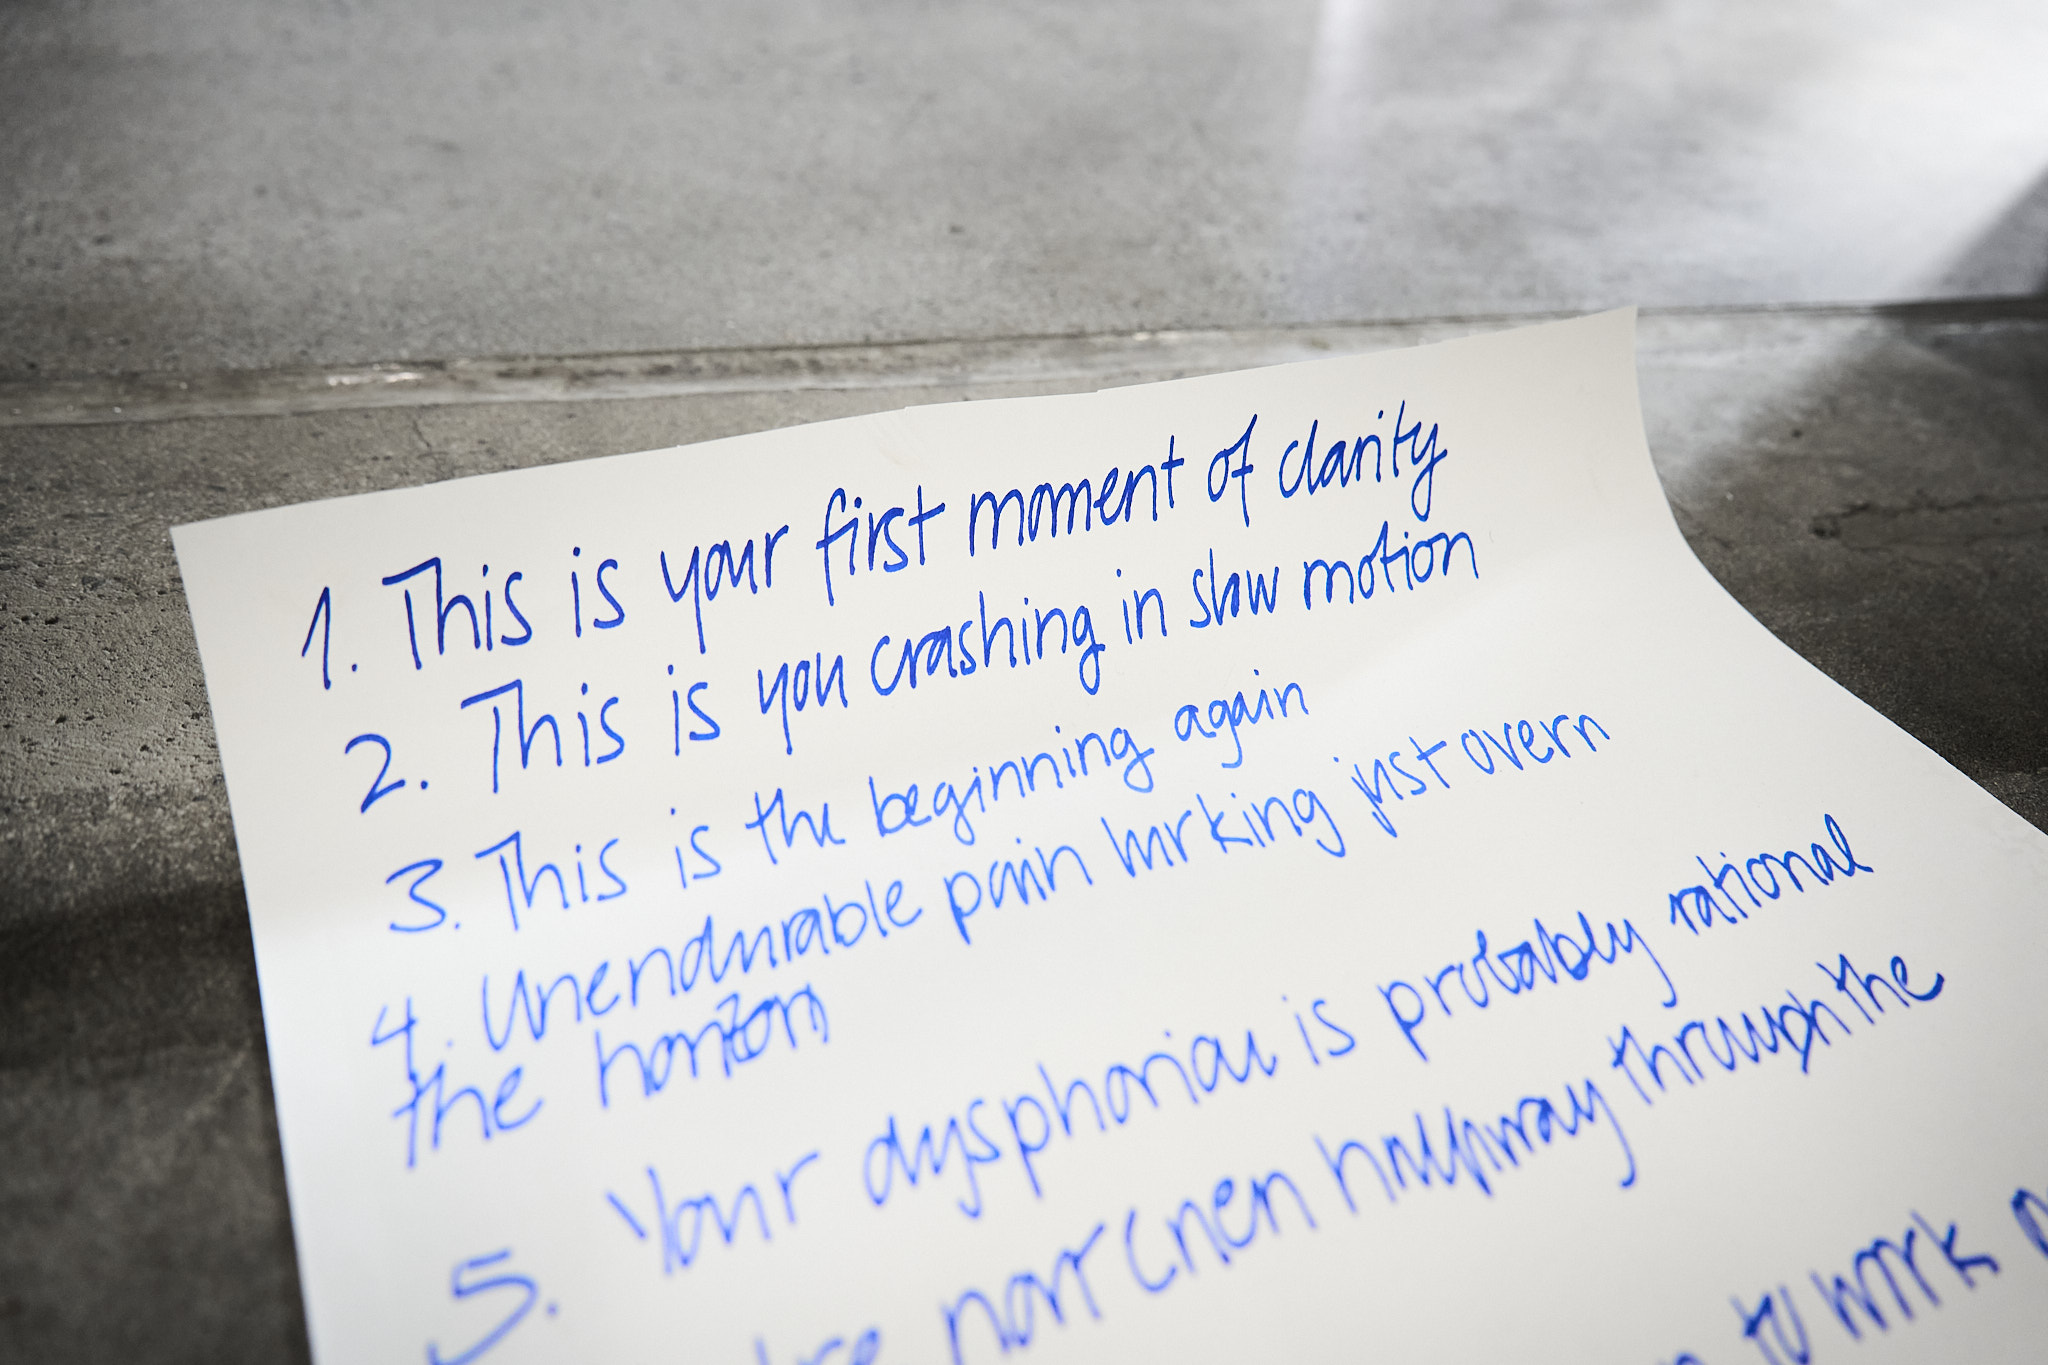 1. This is your first moment of clarity
2. This is you crashing in slow motion
3. This is the beginning again
4. Unendurable pain lurking just overn
the horizon
5. Your dysphoriau is probably rational
halfway through the
to work